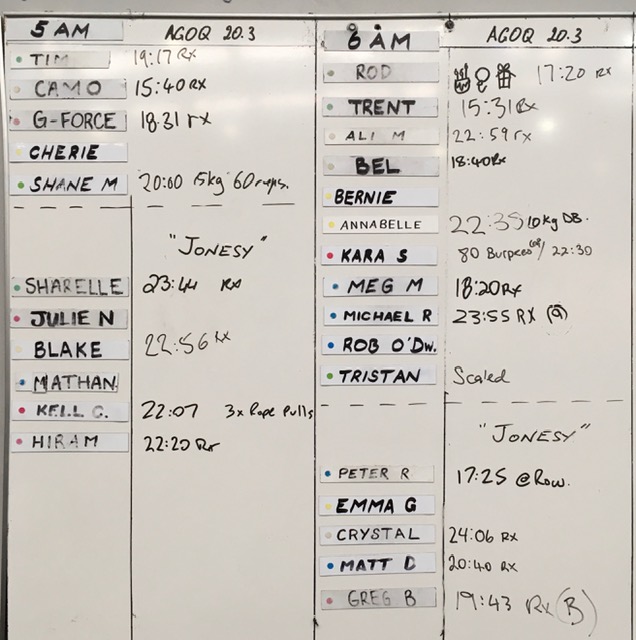 5 AM AGOQ 20.3
TIM 19:17 Rx
CAMO 15:40 RX
G-FORCE 18:31 rx
CHERIE
SHANE M 20:00 15kg 60 reps.
"JONESY"
SHARELLE 23:44 RX
JULIE N
BLAKE 22:56 RX
NATHAN
KELL C. 22:07 3x Rope Pulls
HIRAM 22:20 Rx
6 AM AGOQ 20.3
ROD 17:20 RX
TRENT 15:31 Rx
ALI M 22:59 rx
BEL 18:40 Rx
BERNIE
ANNABELLE 22:35 10kg DB.
KARA S 80 Burpees / 22:30
MEG M 18:20 Rx
MICHAEL R 23:55 RX (9)
ROB O'DW.
TRISTAN Scaled
"JONESY"
PETER R 17:25 @Row.
EMMA G
CRYSTAL 24:06 RX
MATT D 20:40 RX
GREG B 19:43 RX (B)